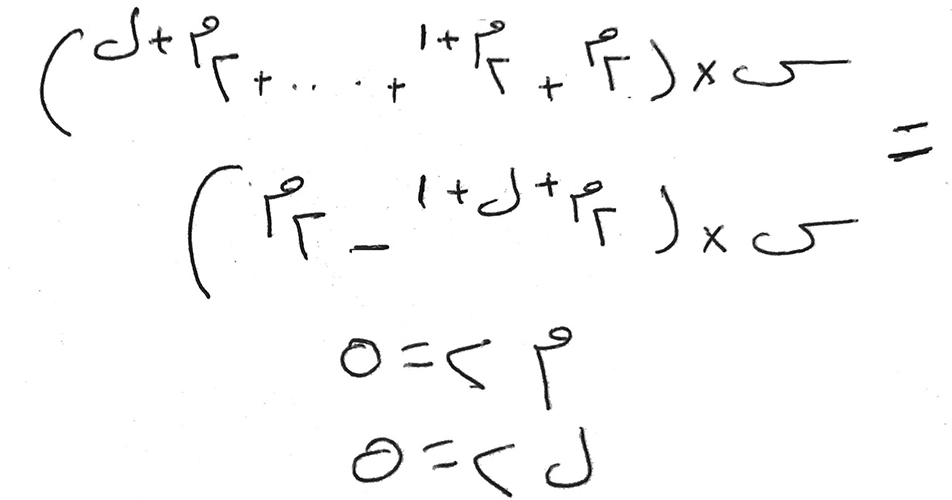 س × (٢^م + ٢^(م+١) + .... + ٢^(م+ل))
= س × (٢^(م+ل+١) - ٢^م)
م >= 0
ل >= 0